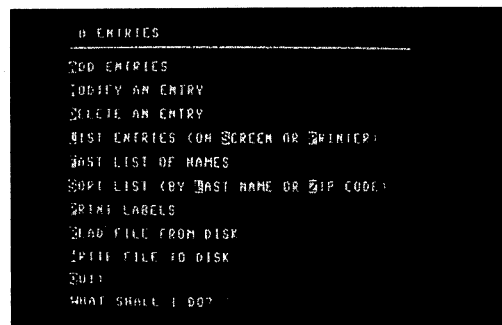 0 ENTRIES
ADD ENTRIES
MODIFY AN ENTRY
DELETE AN ENTRY
LIST ENTRIES (ON SCREEN OR PRINTER)
FAST LIST OF NAMES
SORT LIST (BY LAST NAME OR ZIP CODE)
PRINT LABELS
READ FILE FROM DISK
WRITE FILE TO DISK
QUIT
WHAT SHALL I DO?